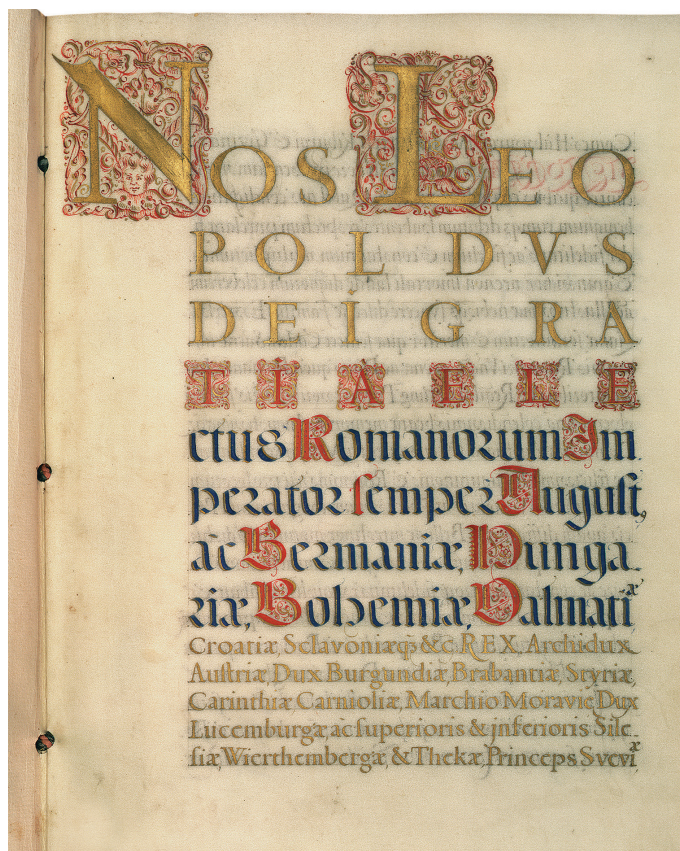 NOS LEO
POLDVS
DEI GRA
TIA ELE
ctus Romanorum Im
perator semper August,
ac Germaniæ, Hunga
riæ, Bohemiæ, Dalmatiæ
Croatiæ, Sclavoniæq3 &c. REX, Archidux
Austriæ, Dux Burgundiæ, Brabantiæ, Styriæ,
Carinthiæ Carnioliæ, Marchio Moravie Dux
Lucemburgæ ac superioris & jnferioris Sile
siæ, Wierthembergæ, & Thekæ, Princeps Sveviæ